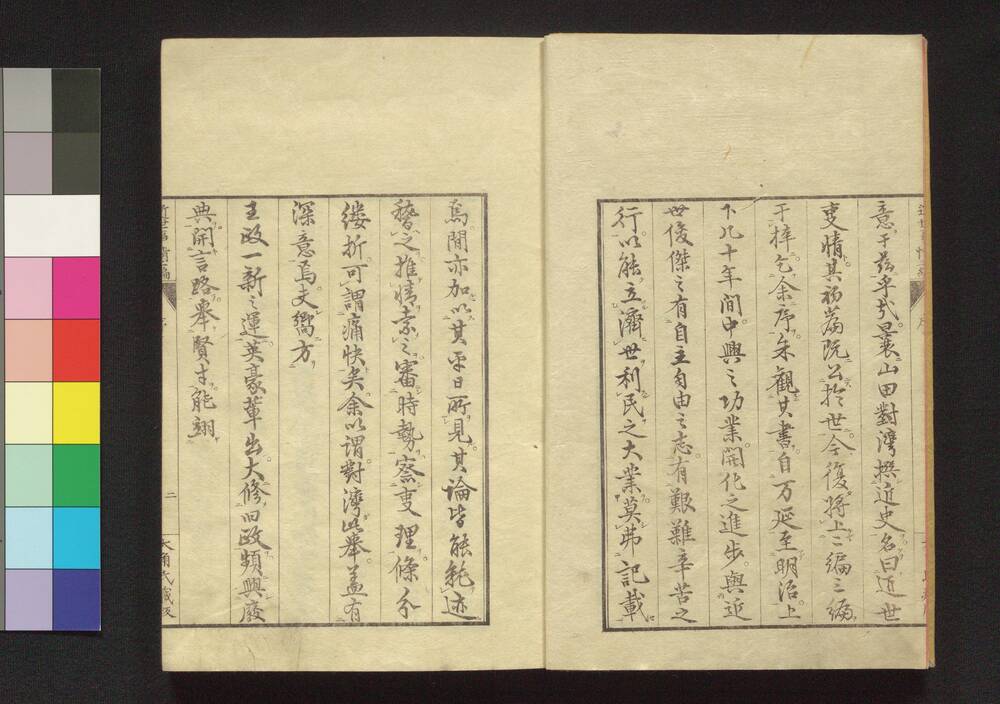 意于茲乎哉曩山田對灣撰近史名曰近世
事情其初篇既公於世今復將上二編三編
于梓乞余序余觀其書自万延至明治上
下凡十年間中興之功業開化之進步與近
世俊傑之有自主自由之志有艱難辛苦之
行以能立濟世利民之大業莫弗記載
焉間亦加以其平日所見其論皆能軌迹
稽之推情素之審時勢察事理條分
縷折可謂痛快矣余以謂對灣此舉蓋有
深意焉夫嚮方
王政一新之運英豪輩出大修旧政頻興廢
典開言路舉賢才能翊
二